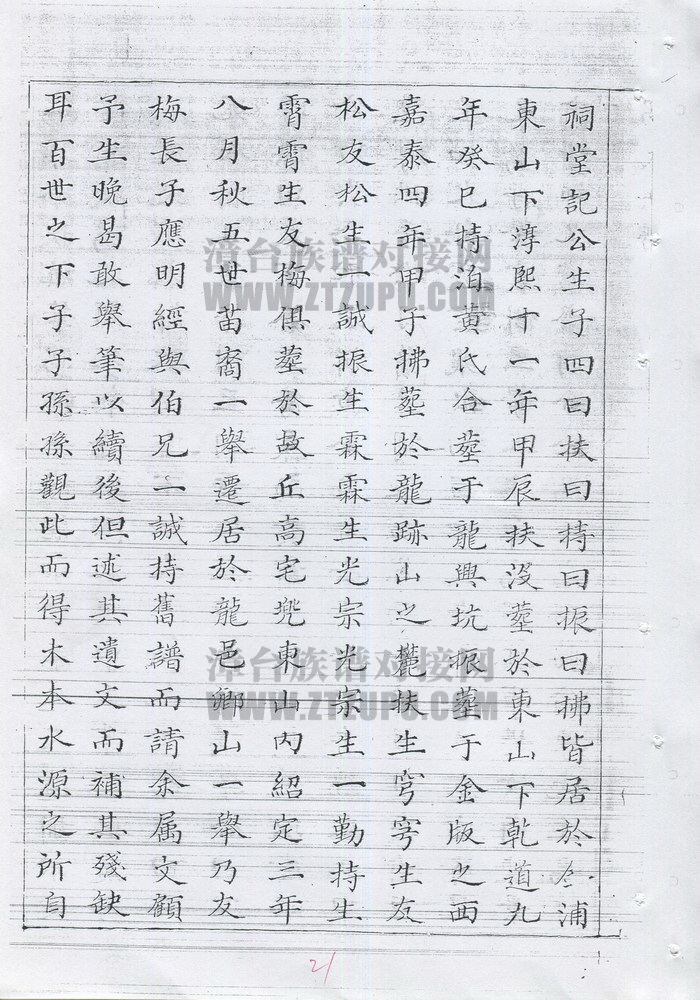 祠堂記公生子四曰扶曰持曰振曰拂皆居於仝浦
東山下淳熙十一年甲辰扶没塟於東山下乾道九
年癸巳持泊黄氏合塟于龍興坑振塟于金版之西
嘉泰四年甲子拂塟於龍跡山之麓扶生穹穹生友
松友松生一誠振生霖霖生光宗光宗生一勤持生
霄霄生友梅俱塟於故丘高宅兠東山内紹定三年
八月秋五世苗裔一舉遷居於龍邑鄉山一舉乃友
梅長子應明經與伯兄一誠持舊譜而請余属文顧
予生晚曷敢舉筆以續後但述其遺文而補其殘缺
耳百世之下子子孫孫觀此而得木本水源之所自
漳台族谱对接网
WWW.ZTZUPU.COM
漳台族谱对接网
WWW.ZTZUPU.COM
21